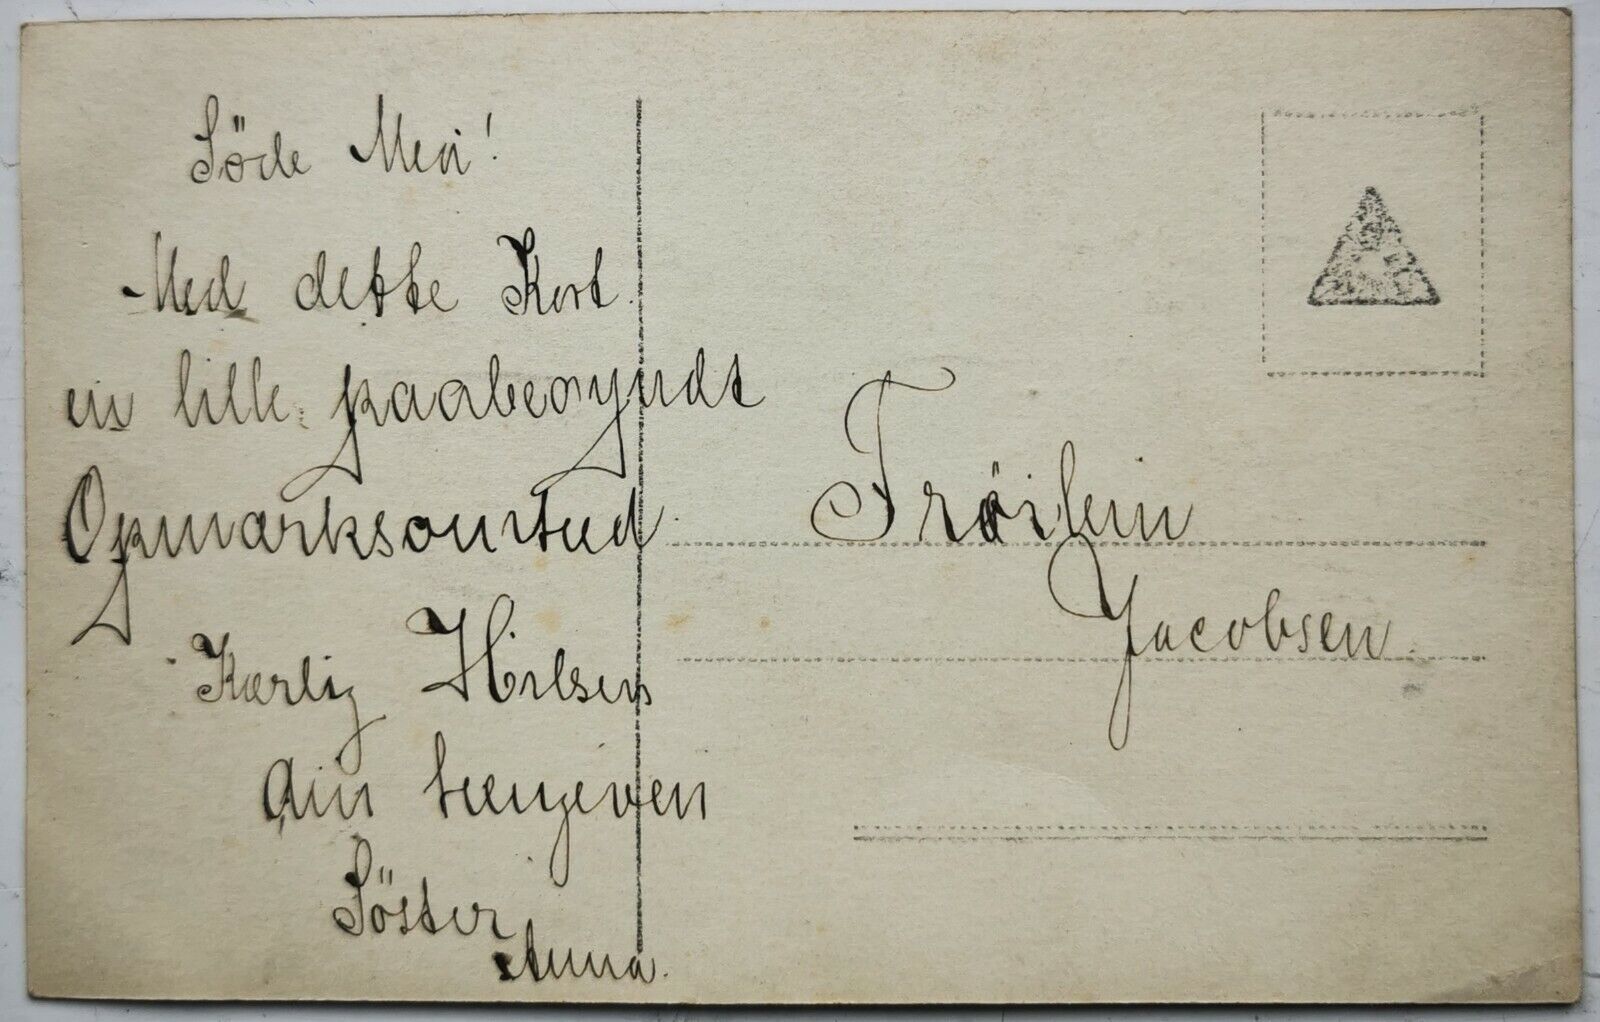 Söde Meä!
Med dette Kort
en lille paabegyndt
Opmærksomhed.
Kærlig Hilsen
din hengiven
Söster
Anna.
Fröilein
Jacobsen.